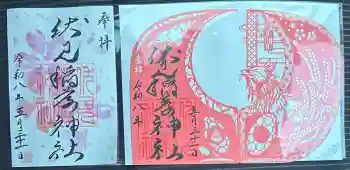 奉拝
伏見稲荷神社
令和八年五月二十一日
奉拝
伏見稲荷神社
令和八年
五月二十一日